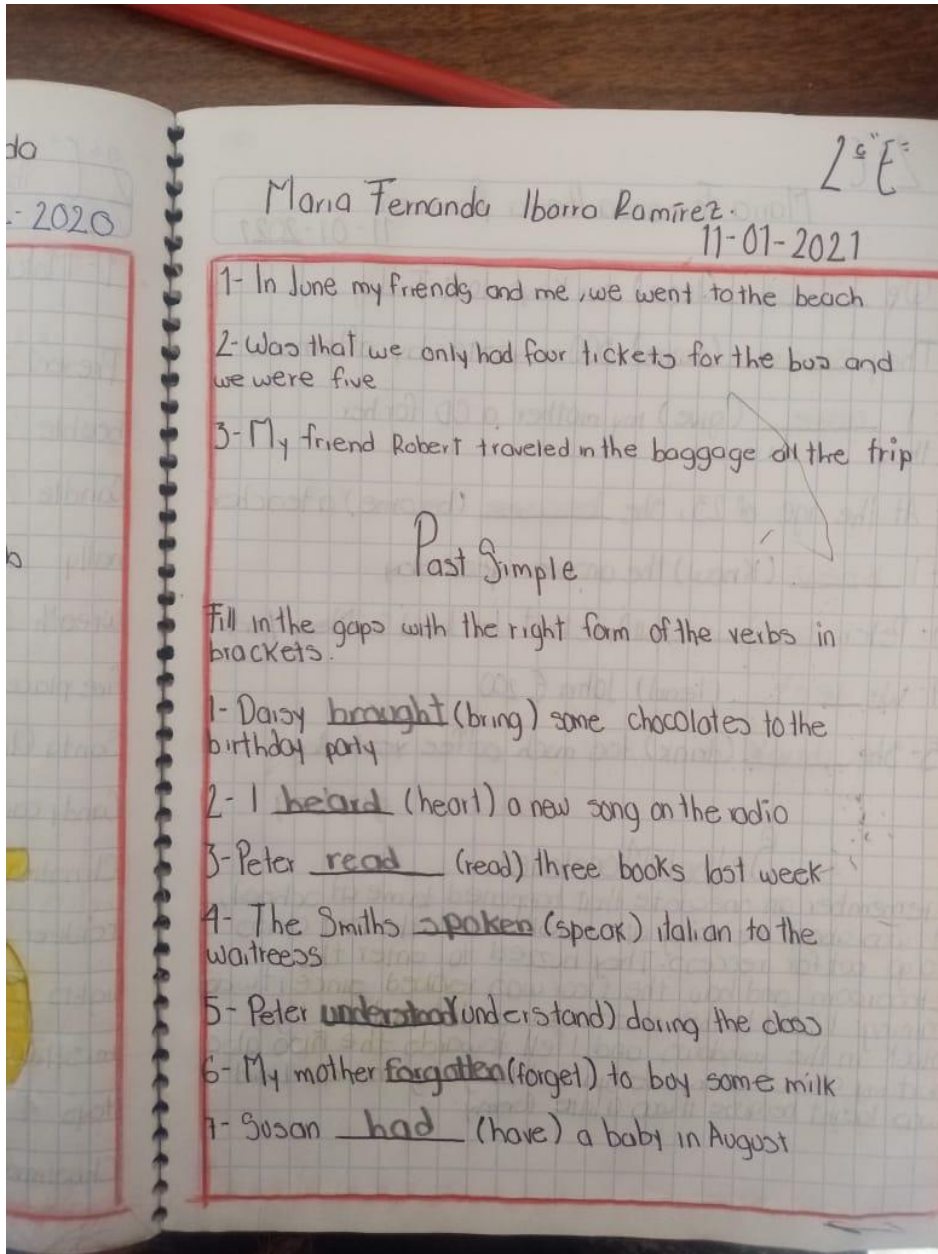 do
- 2020
2º "E"
Maria Fernanda Ibarra Ramírez.
11-01-2021
1- In June my friends and me, we went to the beach
2- Was that we only had four tickets for the bus and
we were five
3- My friend Robert traveled in the baggage all the trip
Past Simple
Fill in the gaps with the right form of the verbs in
brackets.
1- Daisy brought (bring) some chocolates to the
birthday party
2- I heard (heart) a new song on the radio
3- Peter read (read) three books last week
4- The Smiths spoken (speak) italian to the
waitreess
5- Peter understood (understand) doring the class
6- My mother forgotten (forget) to boy some milk
7- Susan had (have) a baby in August